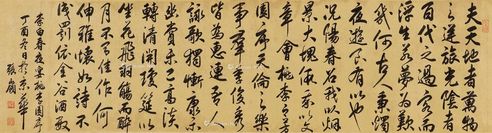 夫天地者萬物
之逆旅光陰者
百代之過客而
浮生若夢為歡
幾何古人秉燭
夜遊良有以也
況陽春召我以煙
景大塊假我以文
章會桃李之芳
園序天倫之樂
事群季俊秀
皆為惠連吾人
詠歌獨慚康樂
幽賞未已高談
轉清開瓊筵以
坐花飛羽觴而醉
月不有佳作何
伸雅懷如詩不
成罰依金谷酒數
李白春夜宴桃李園序
丁酉冬日於京華